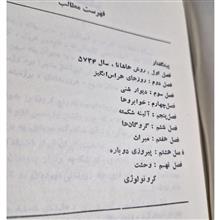 فهرست مطالب
پیشگفتار
فصل اول ، روش هاشانا ، سال ۵۷۳۴
فصل دوم : روزهای هراس‌انگیز
فصل سوم : دیوار شنی
فصل چهارم : خوابروها
فصل پنجم : آئینهٔ شکسته
فصل ششم : گروگان‌ها
فصل هفتم : میراث
فصل هشتم : پیروزی دوباره
فصل نهم : وحشت
کرونولوژی